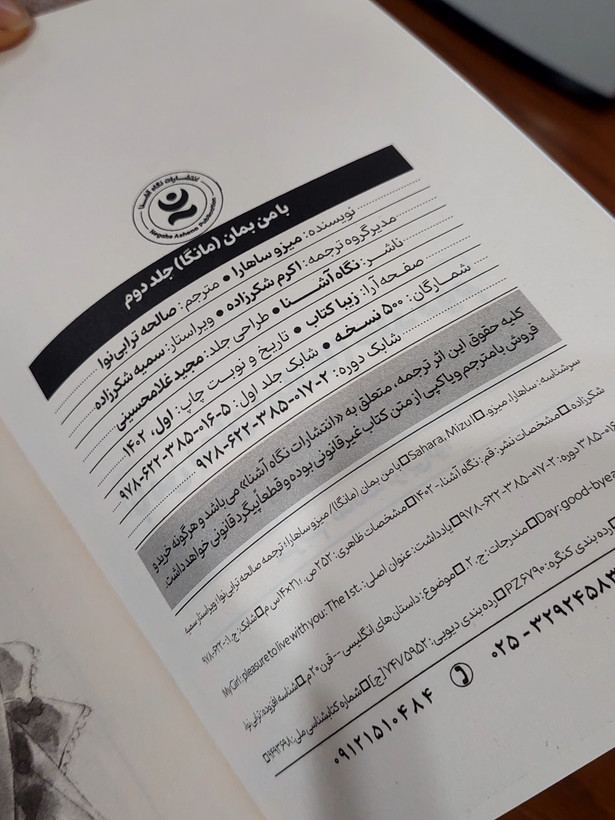 انتشارات نگاه آشنا
Negahe Ashena Publication
با من بمان (مانگا) جلد دوم
نویسنده: میزو ساهارا • مترجم: صالحه ترابی‌نوا
مدیر گروه ترجمه: اکرم شکرزاده • ویراستار: سمیه شکرزاده
ناشر: نگاه آشنا • طراحی جلد: مجید غلامحسینی
صفحه آرا: زیبا کتاب • تاریخ و نوبت چاپ: اول، ۱۴۰۲
شمارگان: ۵۰۰ نسخه • شابک جلد اول: ۵-۰۱۶-۳۸۵-۶۲۲-۹۷۸
شابک دوره: ۲-۰۱۷-۳۸۵-۶۲۲-۹۷۸
کلیه حقوق این اثر ترجمه، متعلق به «انتشارات نگاه آشنا» می باشد و هرگونه خرید و
فروش با مترجم و یا کپی از متن کتاب غیرقانونی بوده و قطعا پیگرد قانونی خواهد داشت.
سرشناسه: ساهارا، میزو. Sahara, Mizu □ با من بمان (مانگا)/ میزو ساهارا؛ ترجمه صالحه ترابی نوا؛ ویراستار سمیه
شکرزاده. □ مشخصات نشر: قم: نگاه آشنا، ۱۴۰۲ □ مشخصات ظاهری: ۲۵۲ ص، ۲۱×۱۴ س م □ شابک: ج.۱:
دوره: ۲-۰۱۷-۳۸۵-۶۲۲-۹۷۸ □ یادداشت: عنوان اصلی: My Girl: pleasure to live with you: The 1st.
Day: good-bye □ مندرجات: ج. ۲. □ موضوع: داستان‌های انگلیسی -- قرن ۲۰ م □ شناسه افزوده: ترابی نوا
رده بندی کنگره: PZ۶۷۹۰ □ رده بندی دیویی: ۷۴۱/۵۹۵۲ [ج] □ شماره کتابشناسی ملی:
۰۲۵-۳۲۹۲۴۵۸۳
۰۹۱۲۱۵۱۰۴۸۴